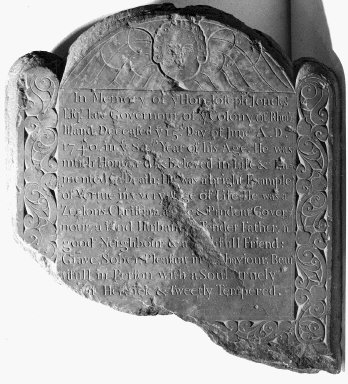 In Memory of yͤ Hon. Joseph Jencks
Esqʳ late Governour of yͤ Colony of Rhod
Iland Deceased yͤ 15 Day of June A.D.
1740 in yͤ 84 Year of his Age. He was
much Honour'd & Beloved in Life & La
mented at Death. He was a bright Example
of Virtue in every e of Life. He was a
Zealous Christian a & Prudent Gover
nour a kind Husband a Tender Father a
good Neighbour & a faithfull Friend:
Grave Sober Pleasant in Behaviour, Beau
tifull in Person with a Soul truely
Heroick & Sweetly Tempered.